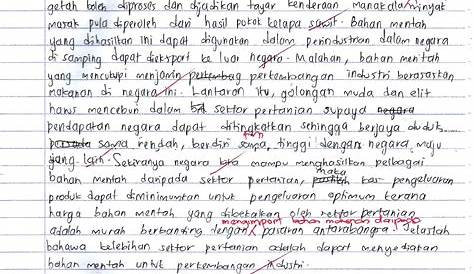 getah boleh diproses dan dijadikan tayar kenderaan manakala minyak
masak pula diperoleh dari hasil pokok kelapa sawit. Bahan mentah
yang dihasilkan ini dapat digunakan dalam perindustrian dalam negara
di samping dapat dieksport ke luar negara. Malahan, bahan mentah
yang mencukupi menjamin perkembangan industri berasaskan
makanan di negara ini. Lantaran itu, golongan muda dan elit
harus menceburi dalam sektor pertanian supaya negara
pendapatan negara dapat ditingkatkan sehingga berjaya duduk
sama rendah, berdiri sama tinggi dengan negara maju
yang lain. Sekiranya negara kita mampu menghasilkan pelbagai
bahan mentah daripada sektor pertanian, maka kos pengeluaran
produk dapat diminimumkan untuk pengeluaran optimum kerana
harga bahan mentah yang dibekalkan oleh sektor pertanian
mengimport bahan mentah daripada
adalah murah berbanding dengan pasaran antarabangsa. Jelaslah
bahawa kelebihan sektor pertanian adalah dapat menyediakan
bahan mentah untuk perkembangan industri.